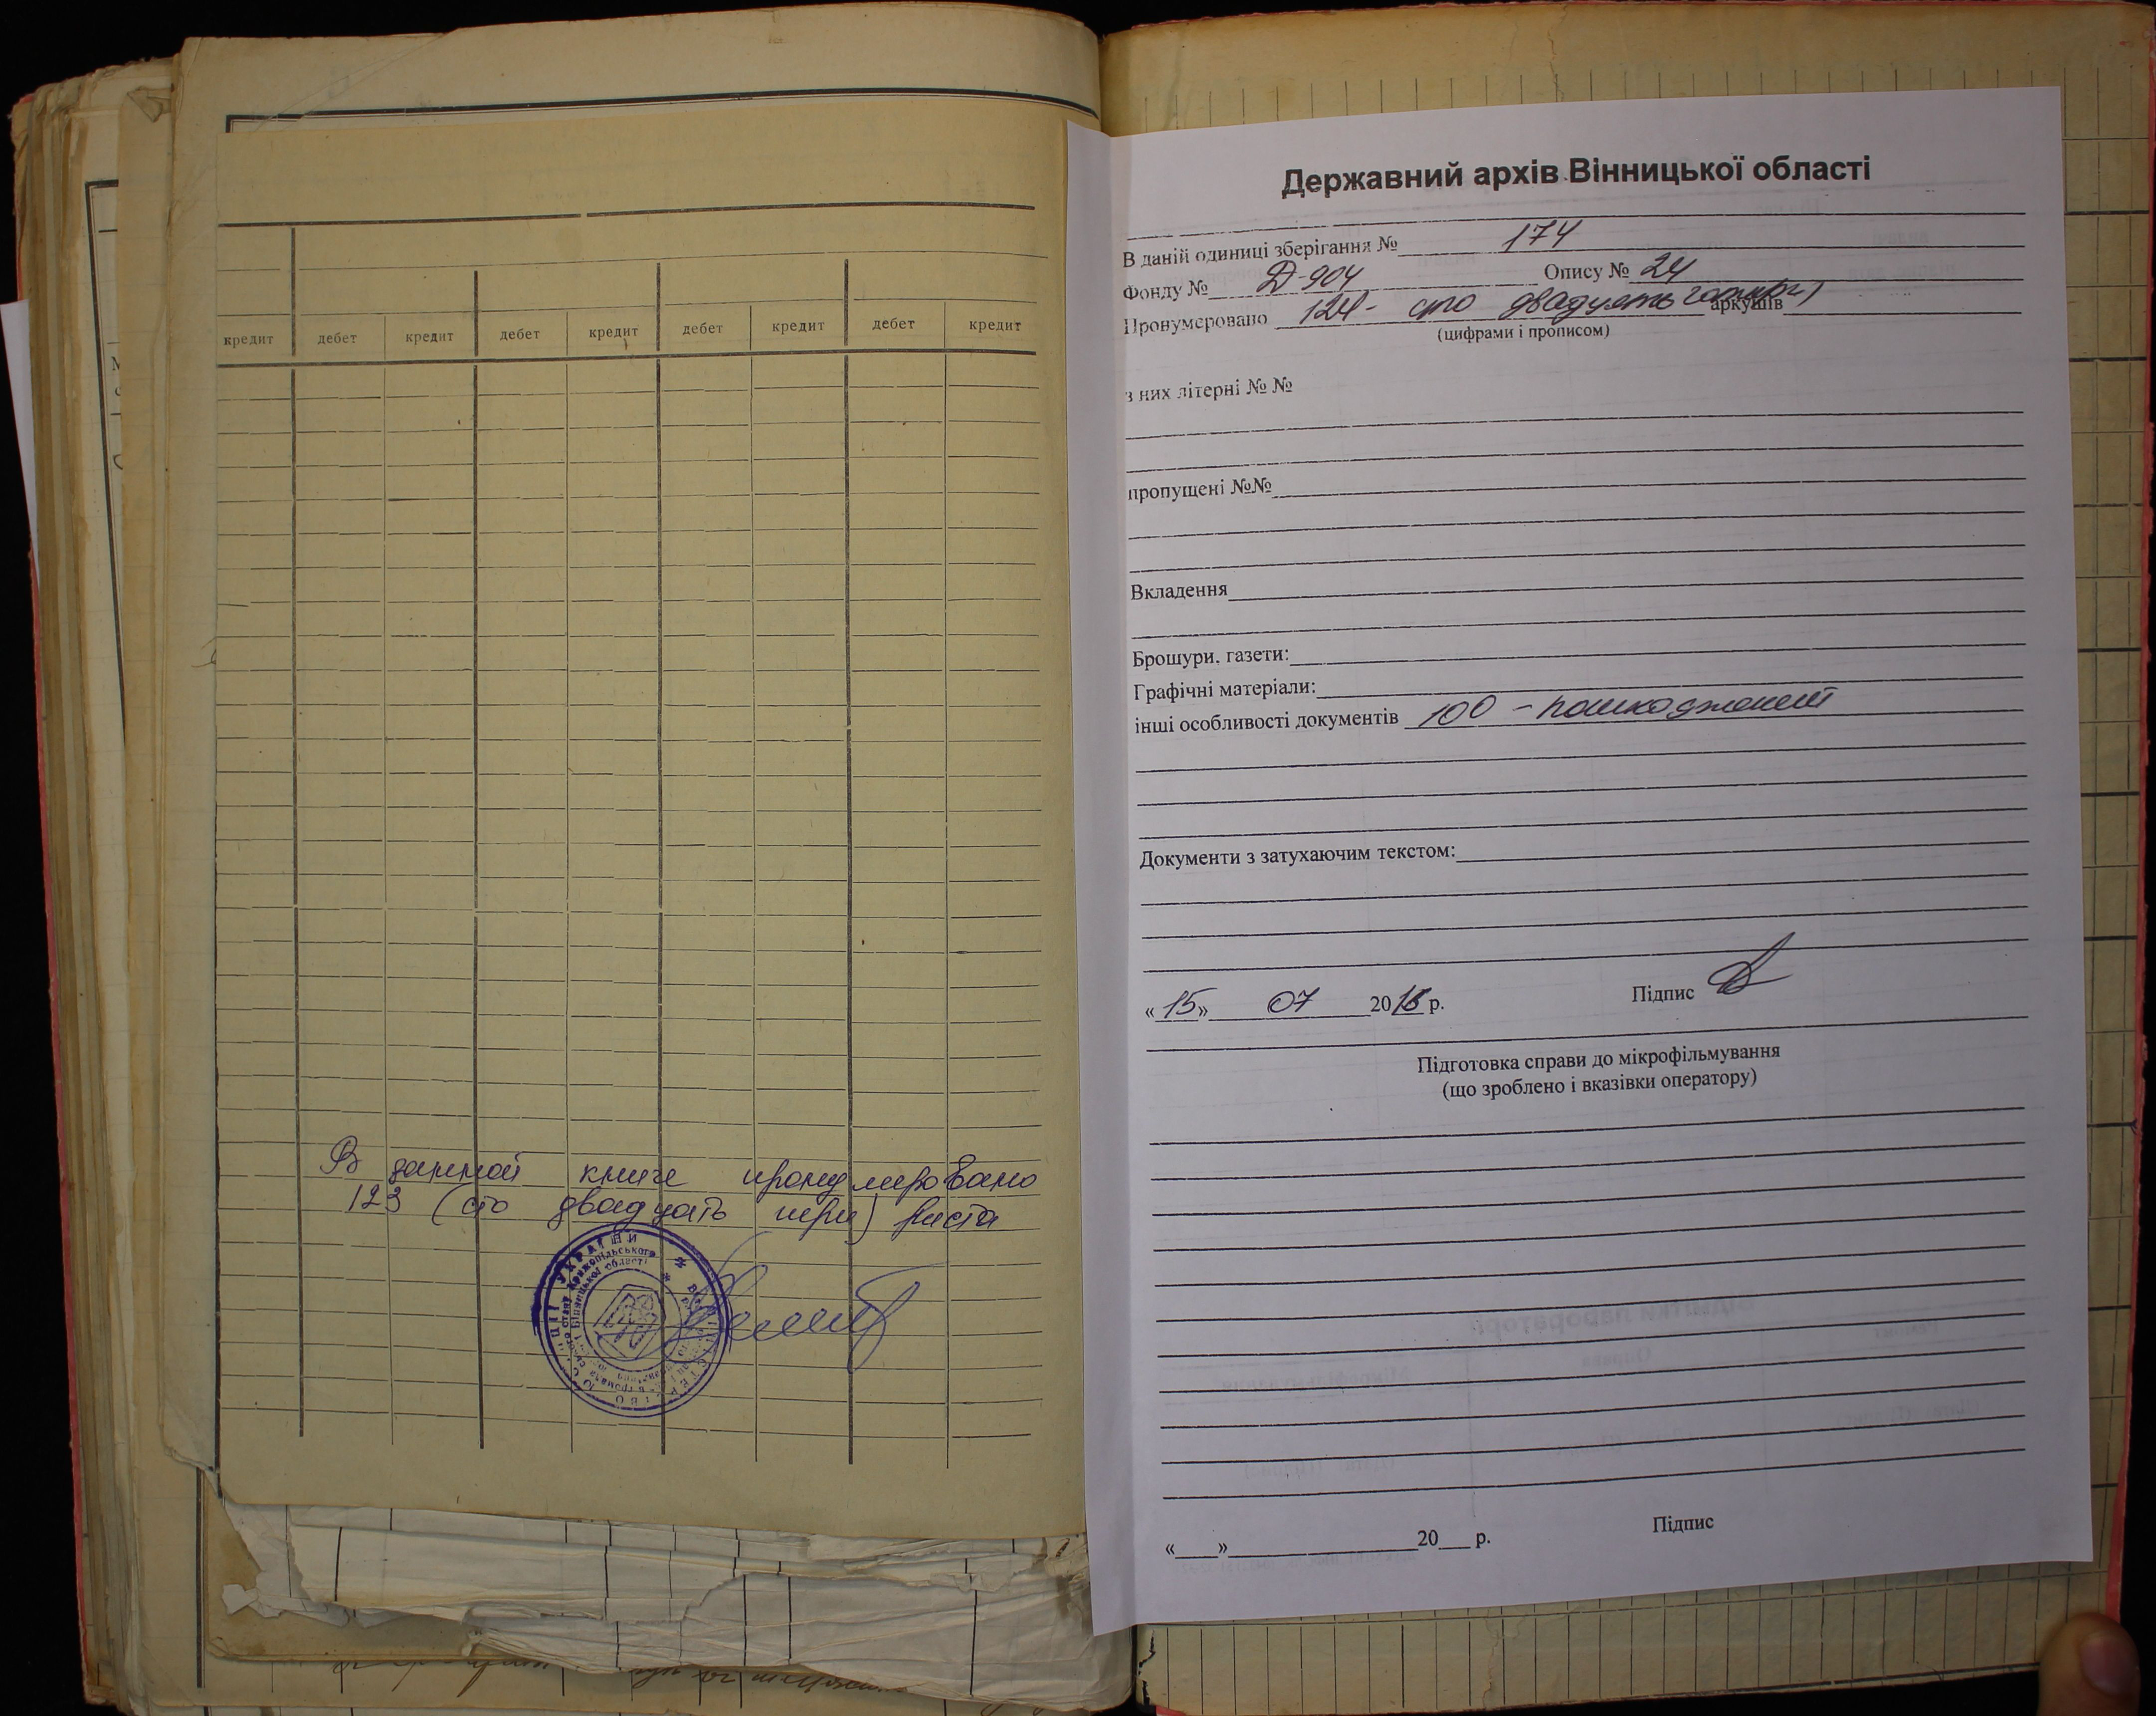 кредит дебет кредит дебет кредит дебет кредит дебет кредит
В данной книге пронумеровано
123 (сто двадцать три) листа
УКРАЇНИ
Крижопільського
Вінницької області
Державний архів Вінницької області
В даній одиниці зберігання № 174
Фонду № Д-904 Опису № 24
Пронумеровано 124- сто двадцять чотири) аркушів
(цифрами і прописом)
з них літерні № №
пропущені №№
Вкладення
Брошури, газети:
Графічні матеріали:
інші особливості документів 100 - пошкоджений
Документи з затухаючим текстом:
«15» 07 2016 р. Підпис
Підготовка справи до мікрофільмування
(що зроблено і вказівки оператору)
«___»___20___ р. Підпис